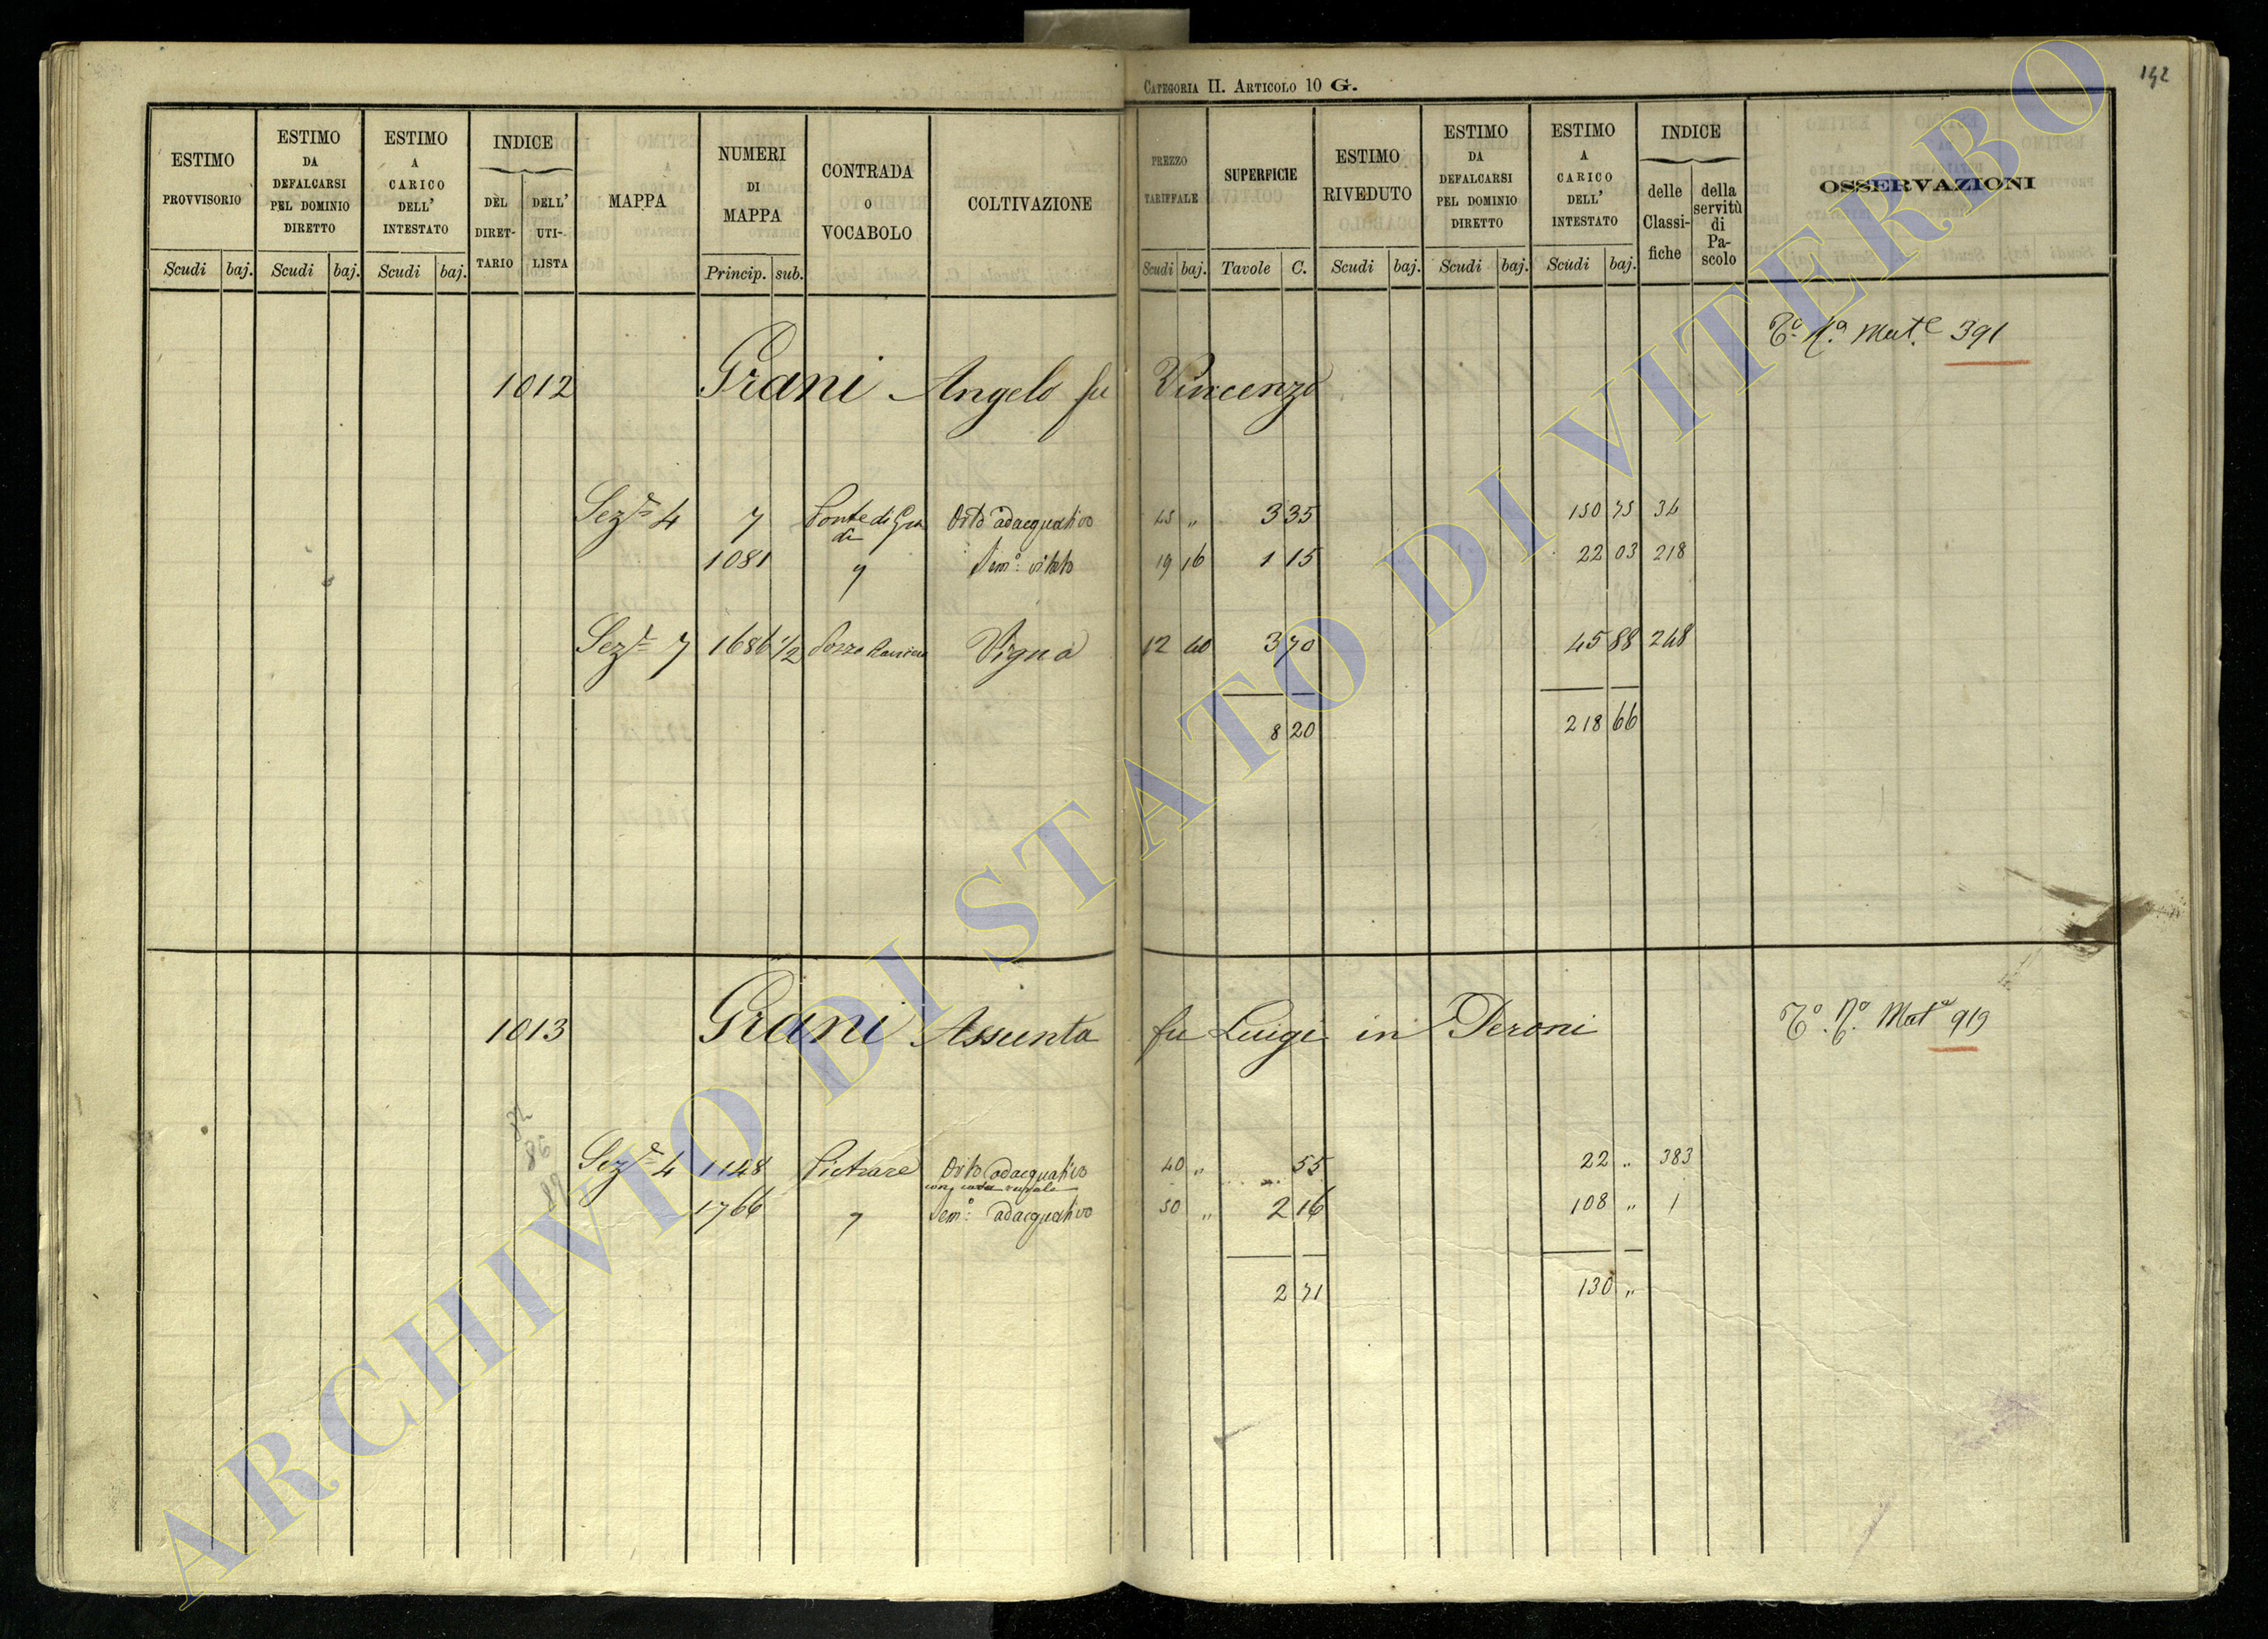 CATEGORIA II. ARTICOLO 10 G.
192
ESTIMO PROVVISORIO
ESTIMO DA DEFALCARSI PEL DOMINIO DIRETTO
ESTIMO A CARICO DELL' INTESTATO
INDICE
DEL DIRETTARIO
DELL' UTILISTA
MAPPA
NUMERI DI MAPPA
CONTRADA O VOCABOLO
COLTIVAZIONE
PREZZO TARIFFALE
SUPERFICIE
ESTIMO RIVEDUTO
ESTIMO DA DEFALCARSI PEL DOMINIO DIRETTO
ESTIMO A CARICO DELL' INTESTATO
INDICE
delle Classifiche
della servitù di Pascolo
OSSERVAZIONI
Scudi baj. Scudi baj. Scudi baj. Princip. sub. Scudi baj. Tavole C. Scudi baj. Scudi baj. Scudi baj.
Mat.e 391
1012 Grani Angelo fu Vincenzo
Sez.e 4 7 Orto adacquativo 45 „ 3 35 150 75 34
1081 „ Sem.o vitato 19 16 1 15 22 03 218
Sez.e 7 1686 1/2 Pozzo Vigna 12 40 3 70 45 88 248
8 20 218 66
1013 Grani Assunta fu Luigi in Peroni
Mat.e 919
Sez.e 4 1148 Pietrare Orto adacquativo 40 „ 55 22 „ 383
con casa rurale
1766 „ Sem.o adacquativo 50 „ 2 16 108 „ 1
2 71 130 „
ARCHIVIO DI STATO DI VITERBO